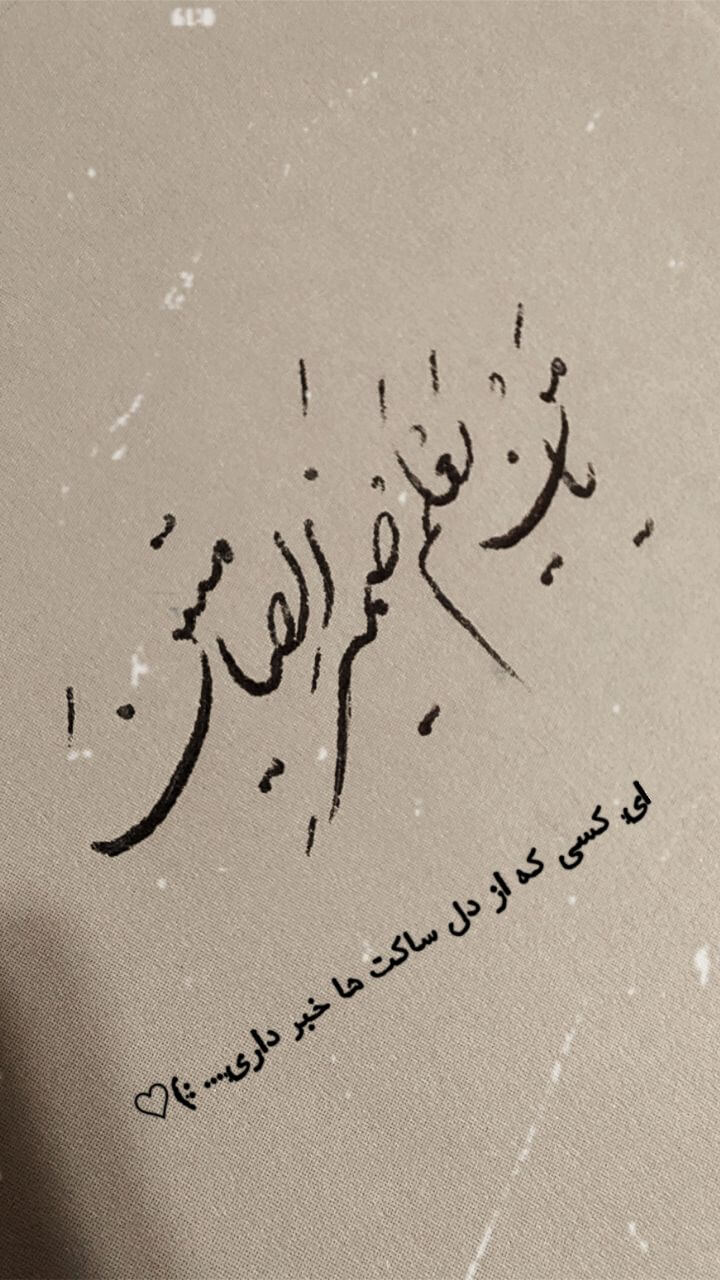 يا مَنْ يَعْلَمُ ضَمیرَ الصّامِتینَ
ای کسی که از دل ساکت ها خبر داری.... :)♡